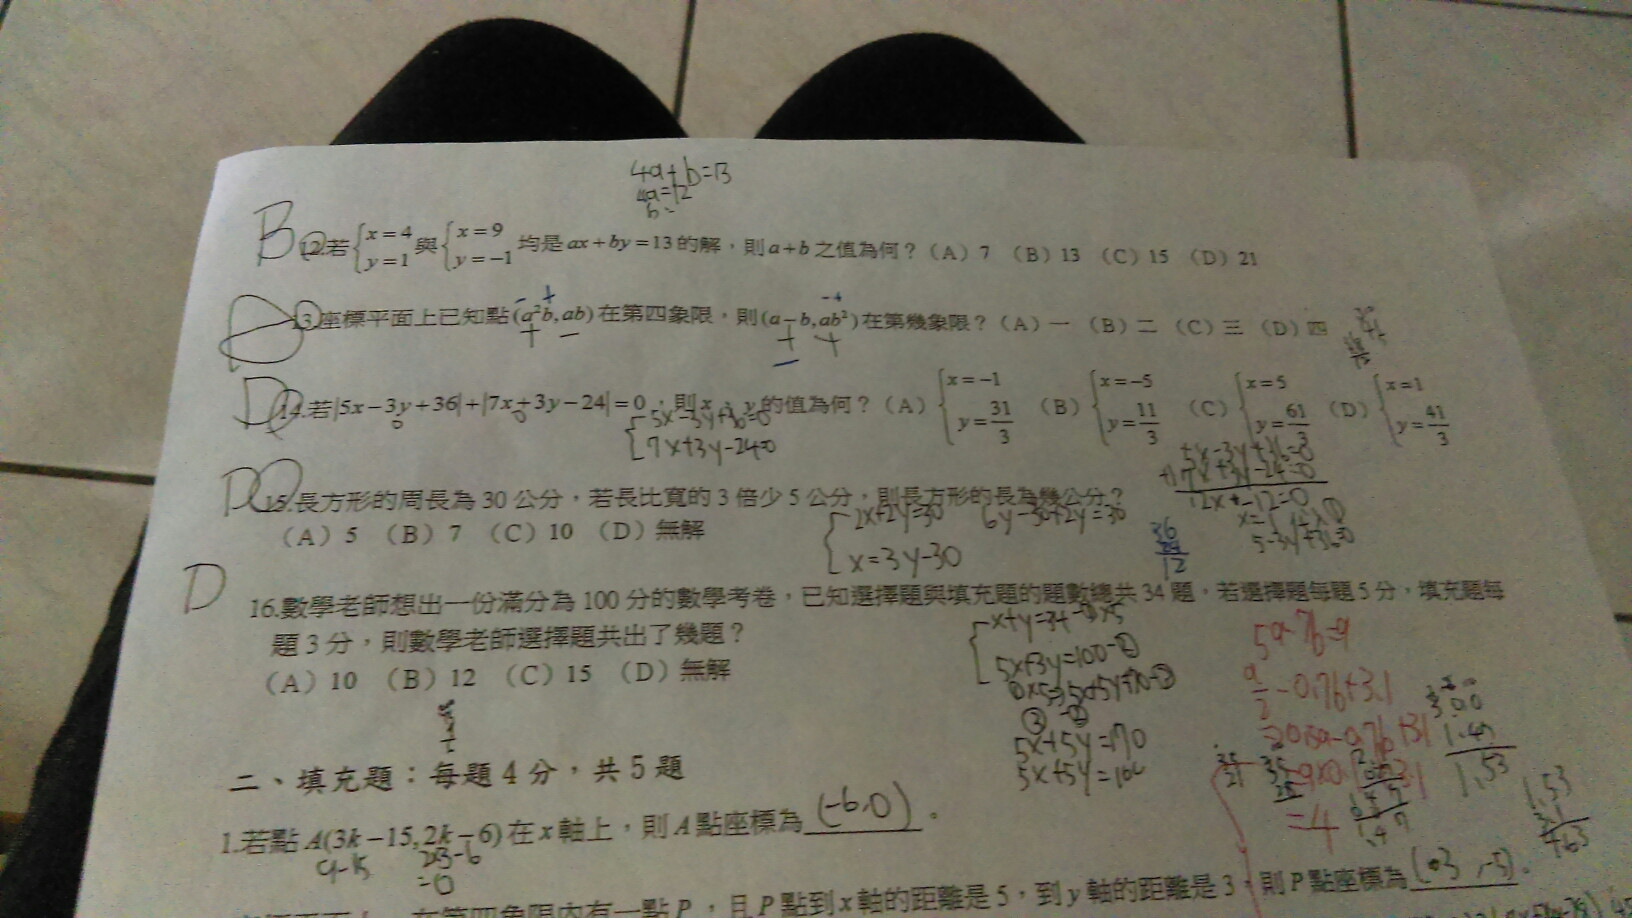 4a+b=13
4a=12
B 12.若{x=4 y=1 與{x=9 y=-1 均是ax+by=13的解，則a+b之值為何？（A）7 （B）13 （C）15 （D）21
13.座標平面上已知點(a²b,ab)在第四象限，則(a-b,ab²)在第幾象限？（A）一 （B）二 （C）三 （D）四
D 14.若|5x-3y+36|+|7x+3y-24|=0，則x、y的值為何？（A）{x=-1 y=31/3 （B）{x=-5 y=11/3 （C）{x=5 y=61/3 （D）{x=1 y=41/3
{5x-3y+36=0
7x+3y-24=0
5x-3y+36=0
+)7x+3y-24=0
12x+-12=0
D 15.長方形的周長為30公分，若長比寬的3倍少5公分，則長方形的長為幾公分？
（A）5 （B）7 （C）10 （D）無解
{2x+2y=30 6y-30+2y=30
x=3y-30
36
24
12
D 16.數學老師想出一份滿分為100分的數學考卷，已知選擇題與填充題的題數總共34題，若選擇題每題5分，填充題每
題3分，則數學老師選擇題共出了幾題？
（A）10 （B）12 （C）15 （D）無解
{x+y=34-①x5
5x+3y=100-②
5x+5y=170
5x+5y=100
5a-7b=9
=4
1.53
二、填充題：每題4分，共5題
1.若點A(3k-15,2k-6)在x軸上，則A點座標為(-6,0)。
9-15 2x3-6
=0
在第四象限內有一點P，且P點到x軸的距離是5，到y軸的距離是3，則P點座標為(+3,-5)。